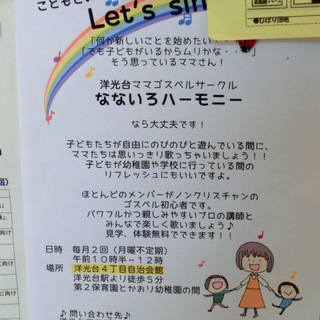 Let's sin
「何か新しいことを始めたい・・・
「でも子どもがいるからムリかな・・・
そう思っているママさん！
洋光台ママゴスペルサークル
なないろハーモニー
なら大丈夫です！
子どもたちが自由にのびのびと遊んでいる間に、
ママたちは思いっきり歌っちゃいましょう！！
子どもが幼稚園や学校に行っている間の
リフレッシュにもいいですよ。
ほとんどのメンバーがノンクリスチャンの
ゴスペル初心者です。
パワフルかつ親しみやすいプロの講師と
みんなで楽しく歌いましょう♪
見学、体験無料でできます！！
日時 毎月２回（月曜不定期）
午前１０時半～１２時
場所 洋光台４丁目自治会館
洋光台駅より徒歩５分
第２保育園とかおり幼稚園の間
♪問い合わせ先♪
●ひばり団地